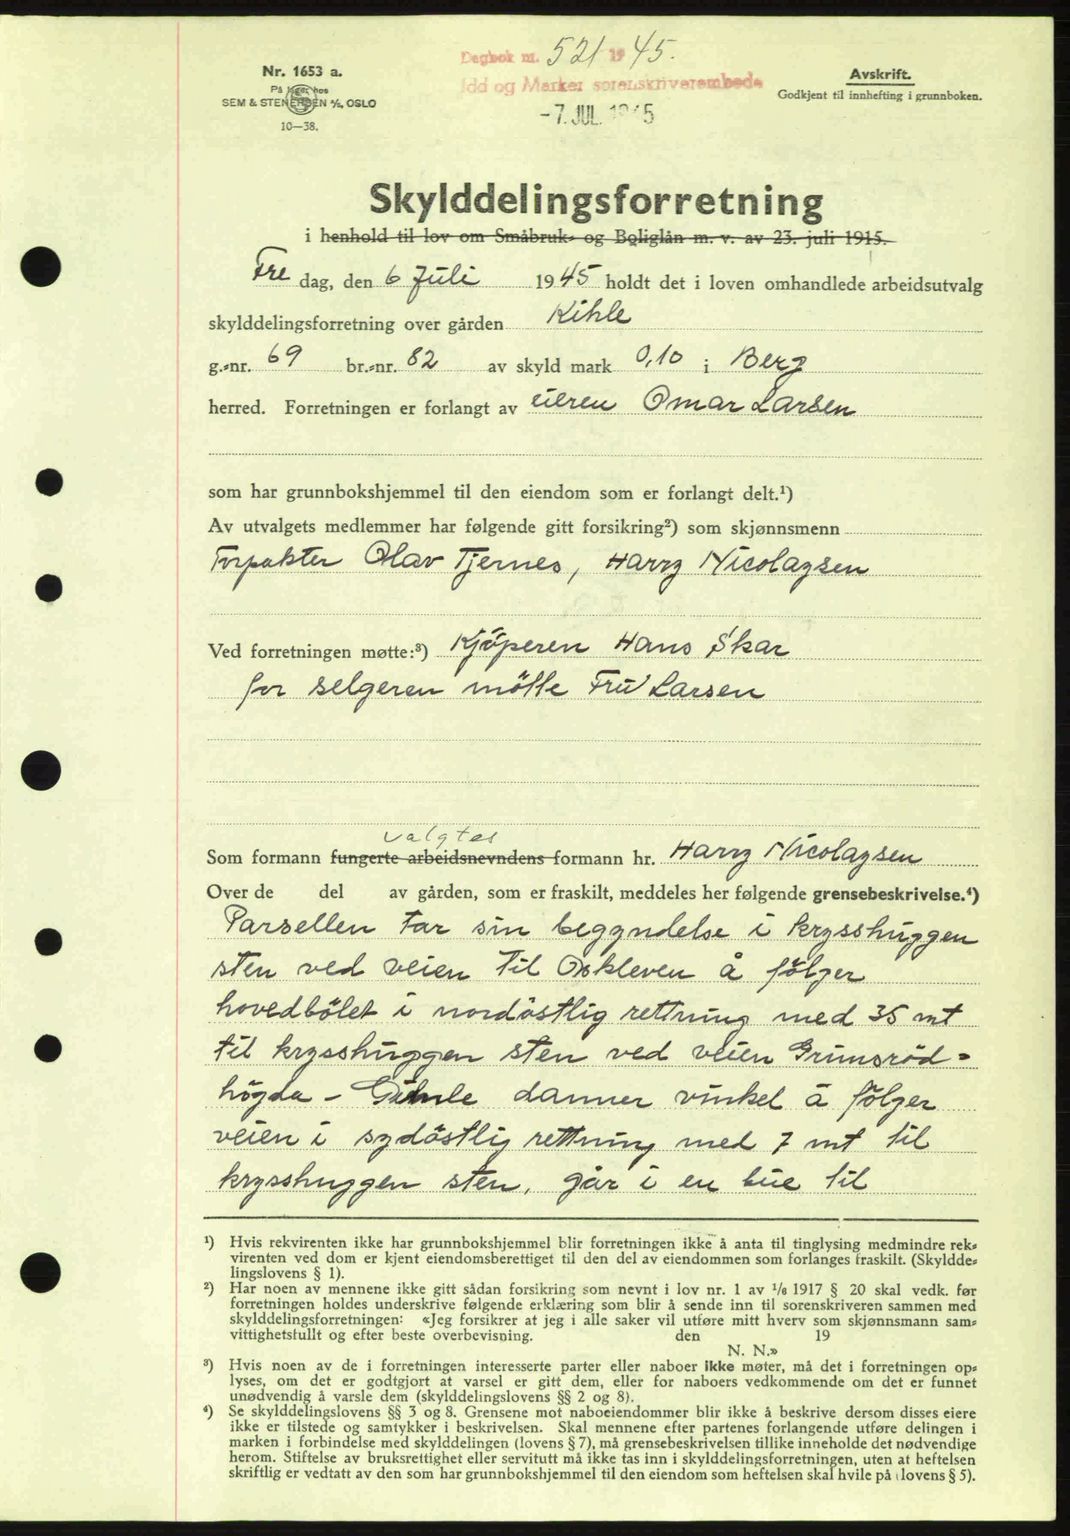 Dagbok nr. 521 1945.
Idd og Marker sorenskriverembede
-7. JUL. 1945
Nr. 1653 a.
På lager hos
SEM & STENERSEN A/S, OSLO
10—38.
Avskrift.
Godkjent til innhefting i grunnboken.
Skylddelingsforretning
i henhold til lov om Småbruk- og Boliglån m. v. av 23. juli 1915.
Fre dag, den 6 Juli 1945 holdt det i loven omhandlede arbeidsutvalg
skylddelingsforretning over gården Kihle
g.-nr. 69 br.-nr. 82 av skyld mark 0,10 i Berg
herred. Forretningen er forlangt av eieren Omar Larsen
som har grunnbokshjemmel til den eiendom som er forlangt delt.¹)
Av utvalgets medlemmer har følgende gitt forsikring²) som skjønnsmenn
Forpakter Olav Tjernes, Harry Nicolaysen
Ved forretningen møtte:³) Kjöperen Hans Skar
for selgeren mötte Fru Larsen
valgtes
Som formann fungerte arbeidsnevndens formann hr. Harry Nicolaysen
Over de del av gården, som er fraskilt, meddeles her følgende grensebeskrivelse.⁴)
Parsellen tar sin begyndelse i krysshuggen
sten ved veien til Oskleven å fölger
hovedbölet i nordöstlig rettning med 35 mt
til krysshuggen sten ved veien Grimsröd-
högda - Gimle danner vinkel å fölger
veien i sydöstlig rettning med 7 mt til
krysshuggen sten, går i en bue til
¹) Hvis rekvirenten ikke har grunnbokshjemmel blir forretningen ikke å anta til tinglysing medmindre rek-
virenten ved dom er kjent eiendomsberettiget til den del av eiendommen som forlanges fraskilt. (Skyldde-
lingslovens § 1).
²) Har noen av mennene ikke gitt sådan forsikring som nevnt i lov nr. 1 av 1/6 1917 § 20 skal vedk. før
forretningen holdes underskrive følgende erklæring som blir å sende inn til sorenskriveren sammen med
skylddelingsforretningen: «Jeg forsikrer at jeg i alle saker vil utføre mitt hverv som skjønnsmann sam-
vittighetsfullt og efter beste overbevisning. den 19
N. N.»
³) Hvis noen av de i forretningen interesserte parter eller naboer ikke møter, må det i forretningen op-
lyses, om det er godtgjort at varsel er gitt dem, eller for naboers vedkommende om det er funnet
unødvendig å varsle dem (skylddelingslovens §§ 2 og 8).
⁴) Se skylddelingslovens §§ 3 og 8. Grensene mot naboeiendommer blir ikke å beskrive dersom disses eiere
ikke er tilstede og samtykker i beskrivelsen. Skal mennene efter partenes forlangende utføre delingen i
marken i forbindelse med skylddelingen (lovens § 7), må grensebeskrivelsen tillike inneholde det nødvendige
herom. Stiftelse av bruksrettighet eller servitutt må ikke tas inn i skylddelingsforretningen, uten at heftelsen
skriftlig er vedtatt av den som har grunnbokshjemmel til den eiendom som heftelsen skal hvile på (lovens § 5).